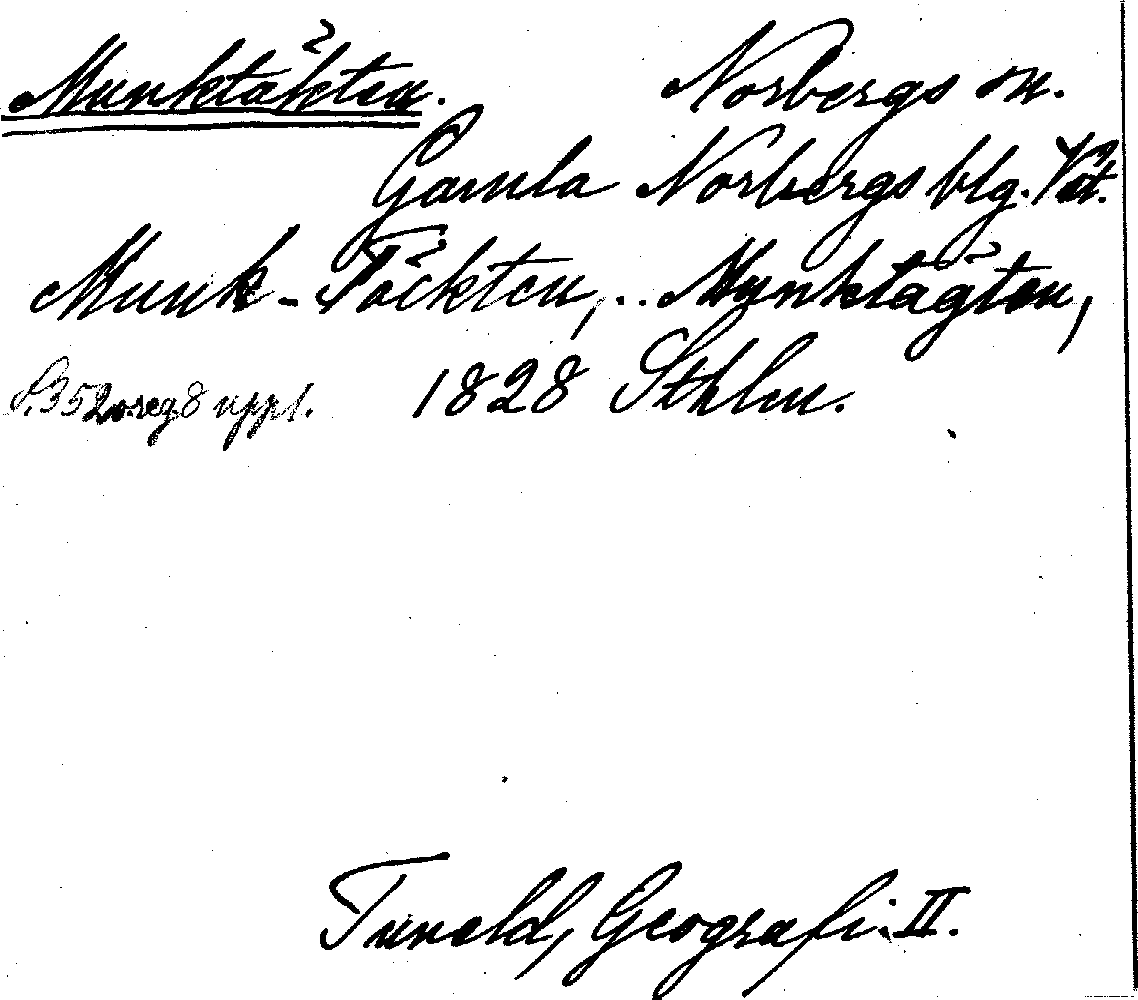 Munktäkten. Norbergs sn.
Gamla Norbergs blg. Vstm.
Munk-Täckten, .. Munktägten,
S. 352 o. reg 8 uppl. 1828 Sthlm.
Tuneld, Geografi. II.